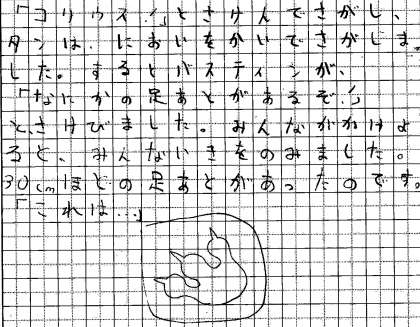 「コリウス！」とさけんでさがし、
タンは、においをかいでさがしま
した。するとバスティンが、
「なにかの足あとがあるぞ！」
と、さけびました。みんながかけよ
ると、みんないきをのみました。
30cmほどの足あとがあったのです。
「これは…」